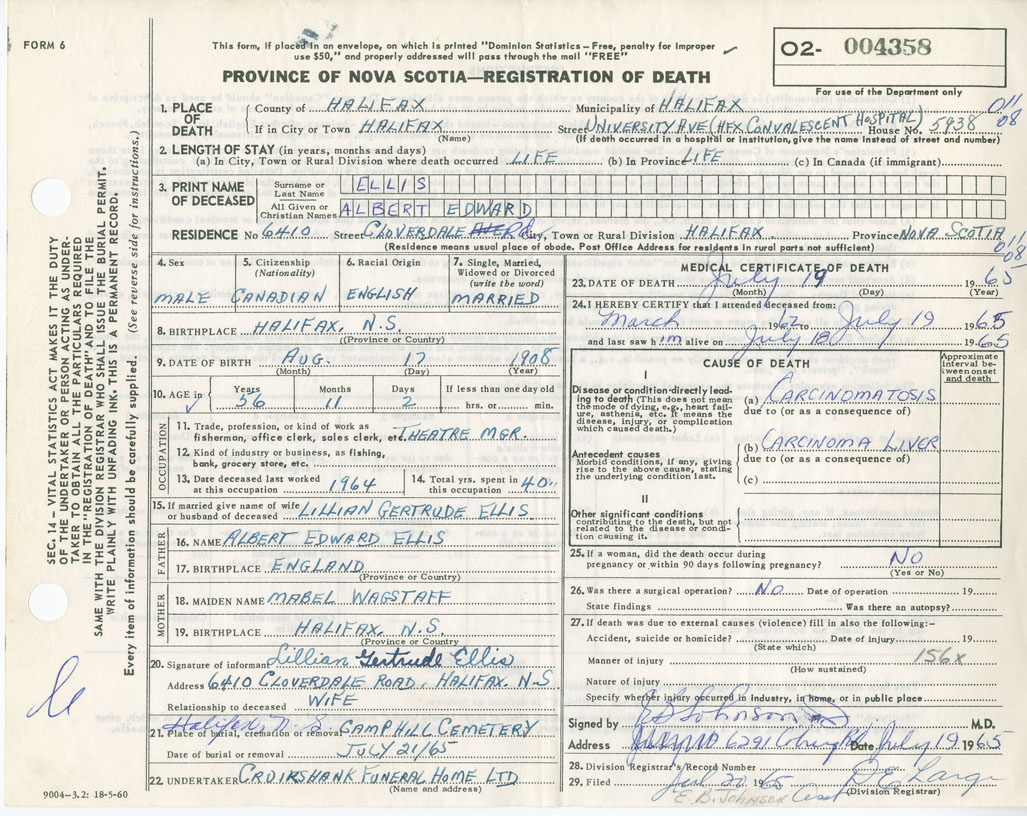 FORM 6
This form, if placed in an envelope, on which is printed "Dominion Statistics – Free, penalty for improper
use $50," and properly addressed will pass through the mail "FREE"
O2- 004358
For use of the Department only
PROVINCE OF NOVA SCOTIA—REGISTRATION OF DEATH
011
08
1. PLACE OF DEATH
County of HALIFAX Municipality of HALIFAX
If in City or Town HALIFAX Street UNIVERSITY AVE (HFX CONVALESCENT HOSPITAL) House No. 5938
(Name) (If death occurred in a hospital or institution, give the name instead of street and number)
2. LENGTH OF STAY (in years, months and days)
(a) In City, Town or Rural Division where death occurred LIFE (b) In Province LIFE (c) In Canada (if immigrant)
3. PRINT NAME OF DECEASED
Surname or Last Name ELLIS
All Given or Christian Names ALBERT EDWARD
RESIDENCE No 6410 Street CLOVERDALE Rd City, Town or Rural Division HALIFAX Province NOVA SCOTIA
(Residence means usual place of abode. Post Office Address for residents in rural parts not sufficient)
011
08
4. Sex MALE
5. Citizenship (Nationality) CANADIAN
6. Racial Origin ENGLISH
7. Single, Married, Widowed or Divorced (write the word) MARRIED
8. BIRTHPLACE HALIFAX, N.S.
(Province or Country)
9. DATE OF BIRTH AUG. 17 1908
(Month) (Day) (Year)
10. AGE in Years 56 Months 11 Days 2 If less than one day old hrs. or min.
OCCUPATION
11. Trade, profession, or kind of work as
fisherman, office clerk, sales clerk, etc. THEATRE MGR.
12. Kind of industry or business, as fishing,
bank, grocery store, etc.
13. Date deceased last worked
at this occupation 1964
14. Total yrs. spent in
this occupation 40
15. If married give name of wife
or husband of deceased LILLIAN GERTRUDE ELLIS
FATHER
16. NAME ALBERT EDWARD ELLIS
17. BIRTHPLACE ENGLAND
(Province or Country)
MOTHER
18. MAIDEN NAME MABEL WAGSTAFF
19. BIRTHPLACE HALIFAX, N.S.
(Province or Country)
20. Signature of informant Lillian Gertrude Ellis
Address 6410 CLOVERDALE ROAD, HALIFAX. N.S
Relationship to deceased WIFE
Halifax N.S.
21. Place of burial, cremation or removal CAMP HILL CEMETERY
Date of burial or removal JULY 21/65
22. UNDERTAKER CRUIKSHANK FUNERAL HOME LTD
(Name and address)
MEDICAL CERTIFICATE OF DEATH
23. DATE OF DEATH July 19 1965
(Month) (Day) (Year)
24. I HEREBY CERTIFY that I attended deceased from:
March 1962 to July 19 1965
and last saw him alive on July 18 1965
CAUSE OF DEATH
Approximate interval between onset and death
I
Disease or condition directly leading to death (This does not mean the mode of dying, e.g., heart failure, asthenia, etc. It means the disease, injury, or complication which caused death.
(a) CARCINOMATOSIS
due to (or as a consequence of)
Antecedent causes
Morbid conditions, if any, giving rise to the above cause, stating the underlying condition last.
(b) CARCINOMA LIVER
due to (or as a consequence of)
(c)
II
Other significant conditions
contributing to the death, but not related to the disease or condition causing it.
25. If a woman, did the death occur during
pregnancy or within 90 days following pregnancy? NO
(Yes or No)
26. Was there a surgical operation? NO Date of operation 19
State findings Was there an autopsy?
27. If death was due to external causes (violence) fill in also the following:-
Accident, suicide or homicide? Date of injury 19
(State which)
Manner of injury 156X
(How sustained)
Nature of injury
Specify whether injury occurred in industry, in home, or in public place
Signed by E B Johnson M.D.
Address 6291 Date July 19 1965
28. Division Registrar's Record Number
29. Filed 20 1965
(Division Registrar)
E. B. JOHNSON
SEC. 14 – VITAL STATISTICS ACT MAKES IT THE DUTY
OF THE UNDERTAKER OR PERSON ACTING AS UNDER-
TAKER TO OBTAIN ALL THE PARTICULARS REQUIRED
IN THE "REGISTRATION OF DEATH" AND TO FILE THE
SAME WITH THE DIVISION REGISTRAR WHO SHALL ISSUE THE BURIAL PERMIT.
WRITE PLAINLY WITH UNFADING INK. THIS IS A PERMANENT RECORD.
Every item of information should be carefully supplied. (See reverse side for instructions.)
9004–3.2: 18-5-60